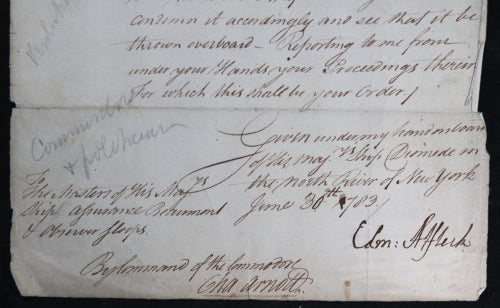 condemn it accordingly and see that it be
thrown overboard – Reporting to me from
under your Hands, your Proceedings therein
For which this shall be your Order /
Commodore
& politician
Given under my hand on board
of His Maj.ys Ship Diomede in
the North River of New York
June 30th 1783 /
To
The Masters of His Maj.ys
Ships Assurance
& Observer Sloops.
Edm: Affleck
By Command of the Commodore